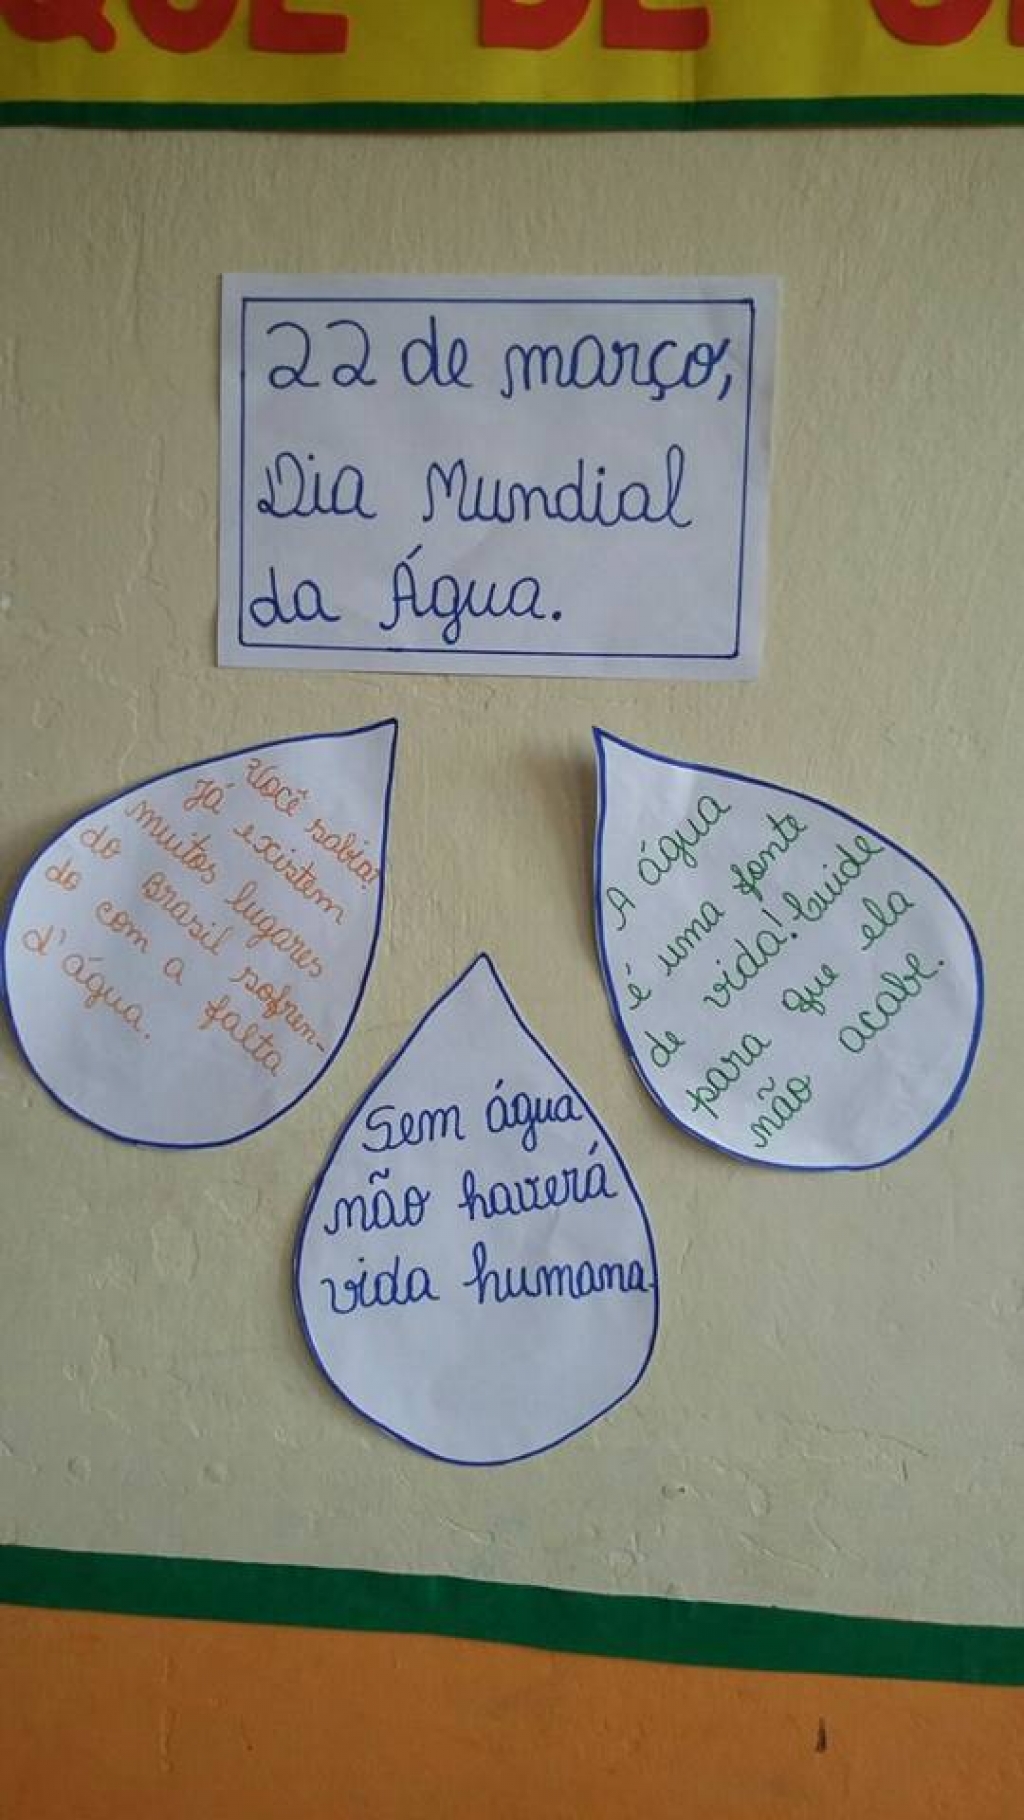 QUE DE
22 de março,
Dia Mundial
da Água.
Você sabia?
Já existem
muitos lugares
do Brasil sofren-
do com a falta
d'água.
A água
é uma fonte
de vida! Cuide
para que ela
não acabe.
Sem água
não haverá
vida humana.